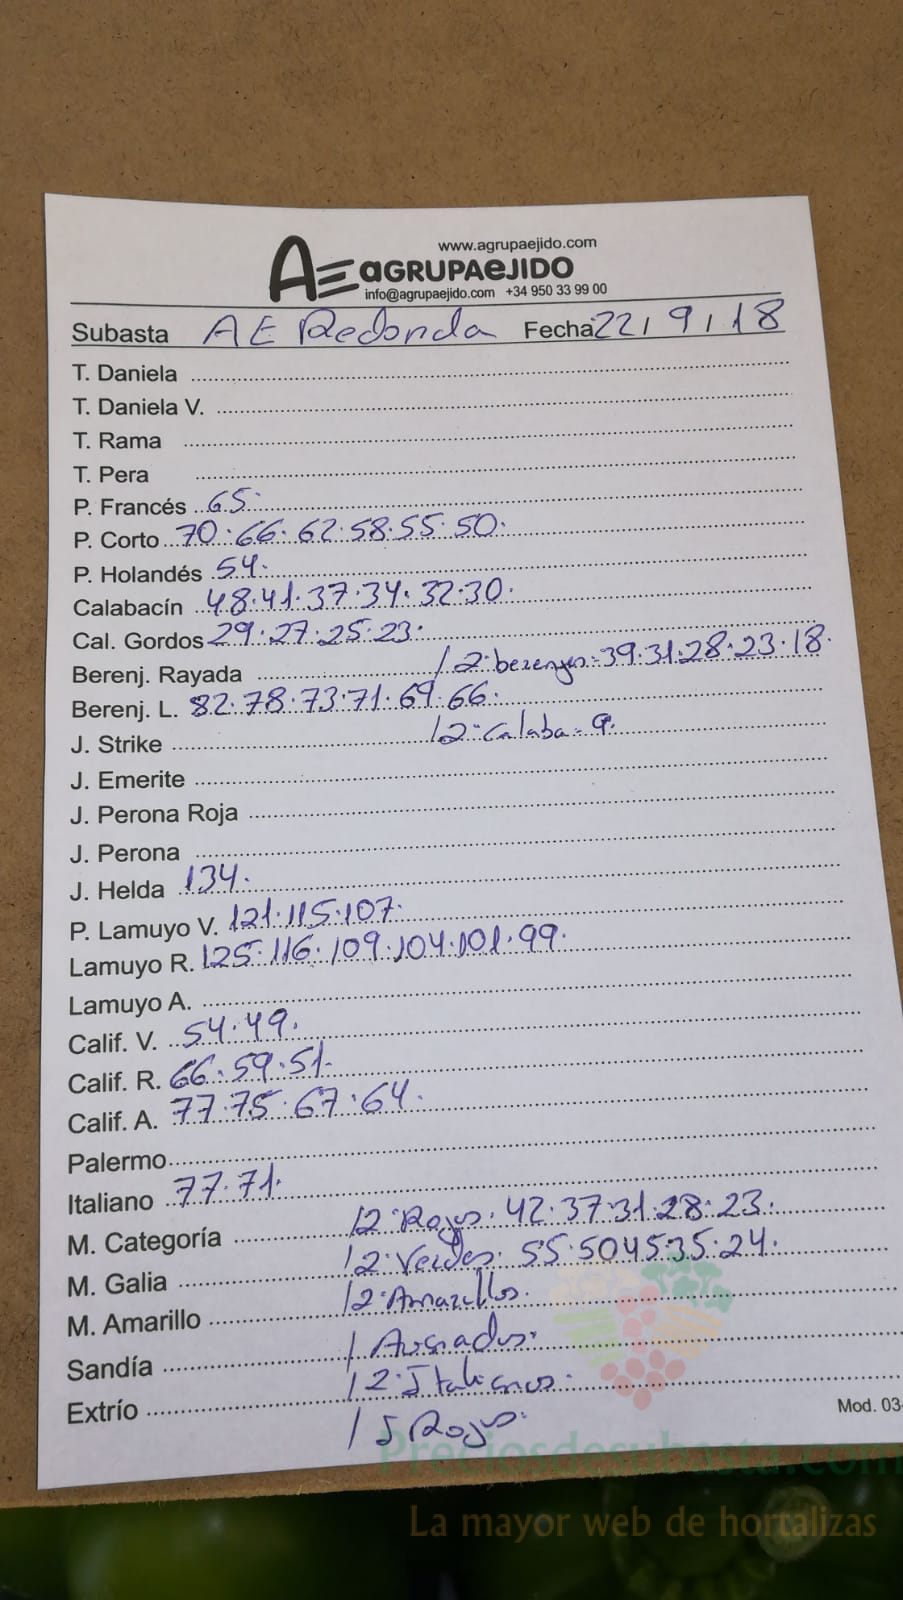 www.agrupaejido.com
AE aGRUPAeJIDO
info@agrupaejido.com +34 950 33 99 00
Subasta AE Redonda Fecha 22/9/18
T. Daniela
T. Daniela V.
T. Rama
T. Pera
P. Francés 65.
P. Corto 70.66.62.58.55.50.
P. Holandés 54.
Calabacín 48.41.37.34.32.30.
Cal. Gordos 29.27.25.23.
Berenj. Rayada /2ª berenjes=39.31.28.23.18.
Berenj. L. 82.78.73.71.69.66.
J. Strike /2ª Calaba=9.
J. Emerite
J. Perona Roja
J. Perona
J. Helda 134.
P. Lamuyo V. 121.115.107.
Lamuyo R. 125.116.109.104.101.99.
Lamuyo A.
Calif. V. 54.49.
Calif. R. 66.59.51.
Calif. A. 77.75.67.64.
Palermo
Italiano 77.71.
M. Categoría /2ª Rojos. 42.37.31.28.23.
M. Galia /2ª Verdes. 55.50.45.35.24.
M. Amarillo /2ª Amarillos.
Sandía / Asurados.
Extrío /2ª Italianos.
/ J Rojos.
Mod. 03-
Preciosdesubasta.com
La mayor web de hortalizas